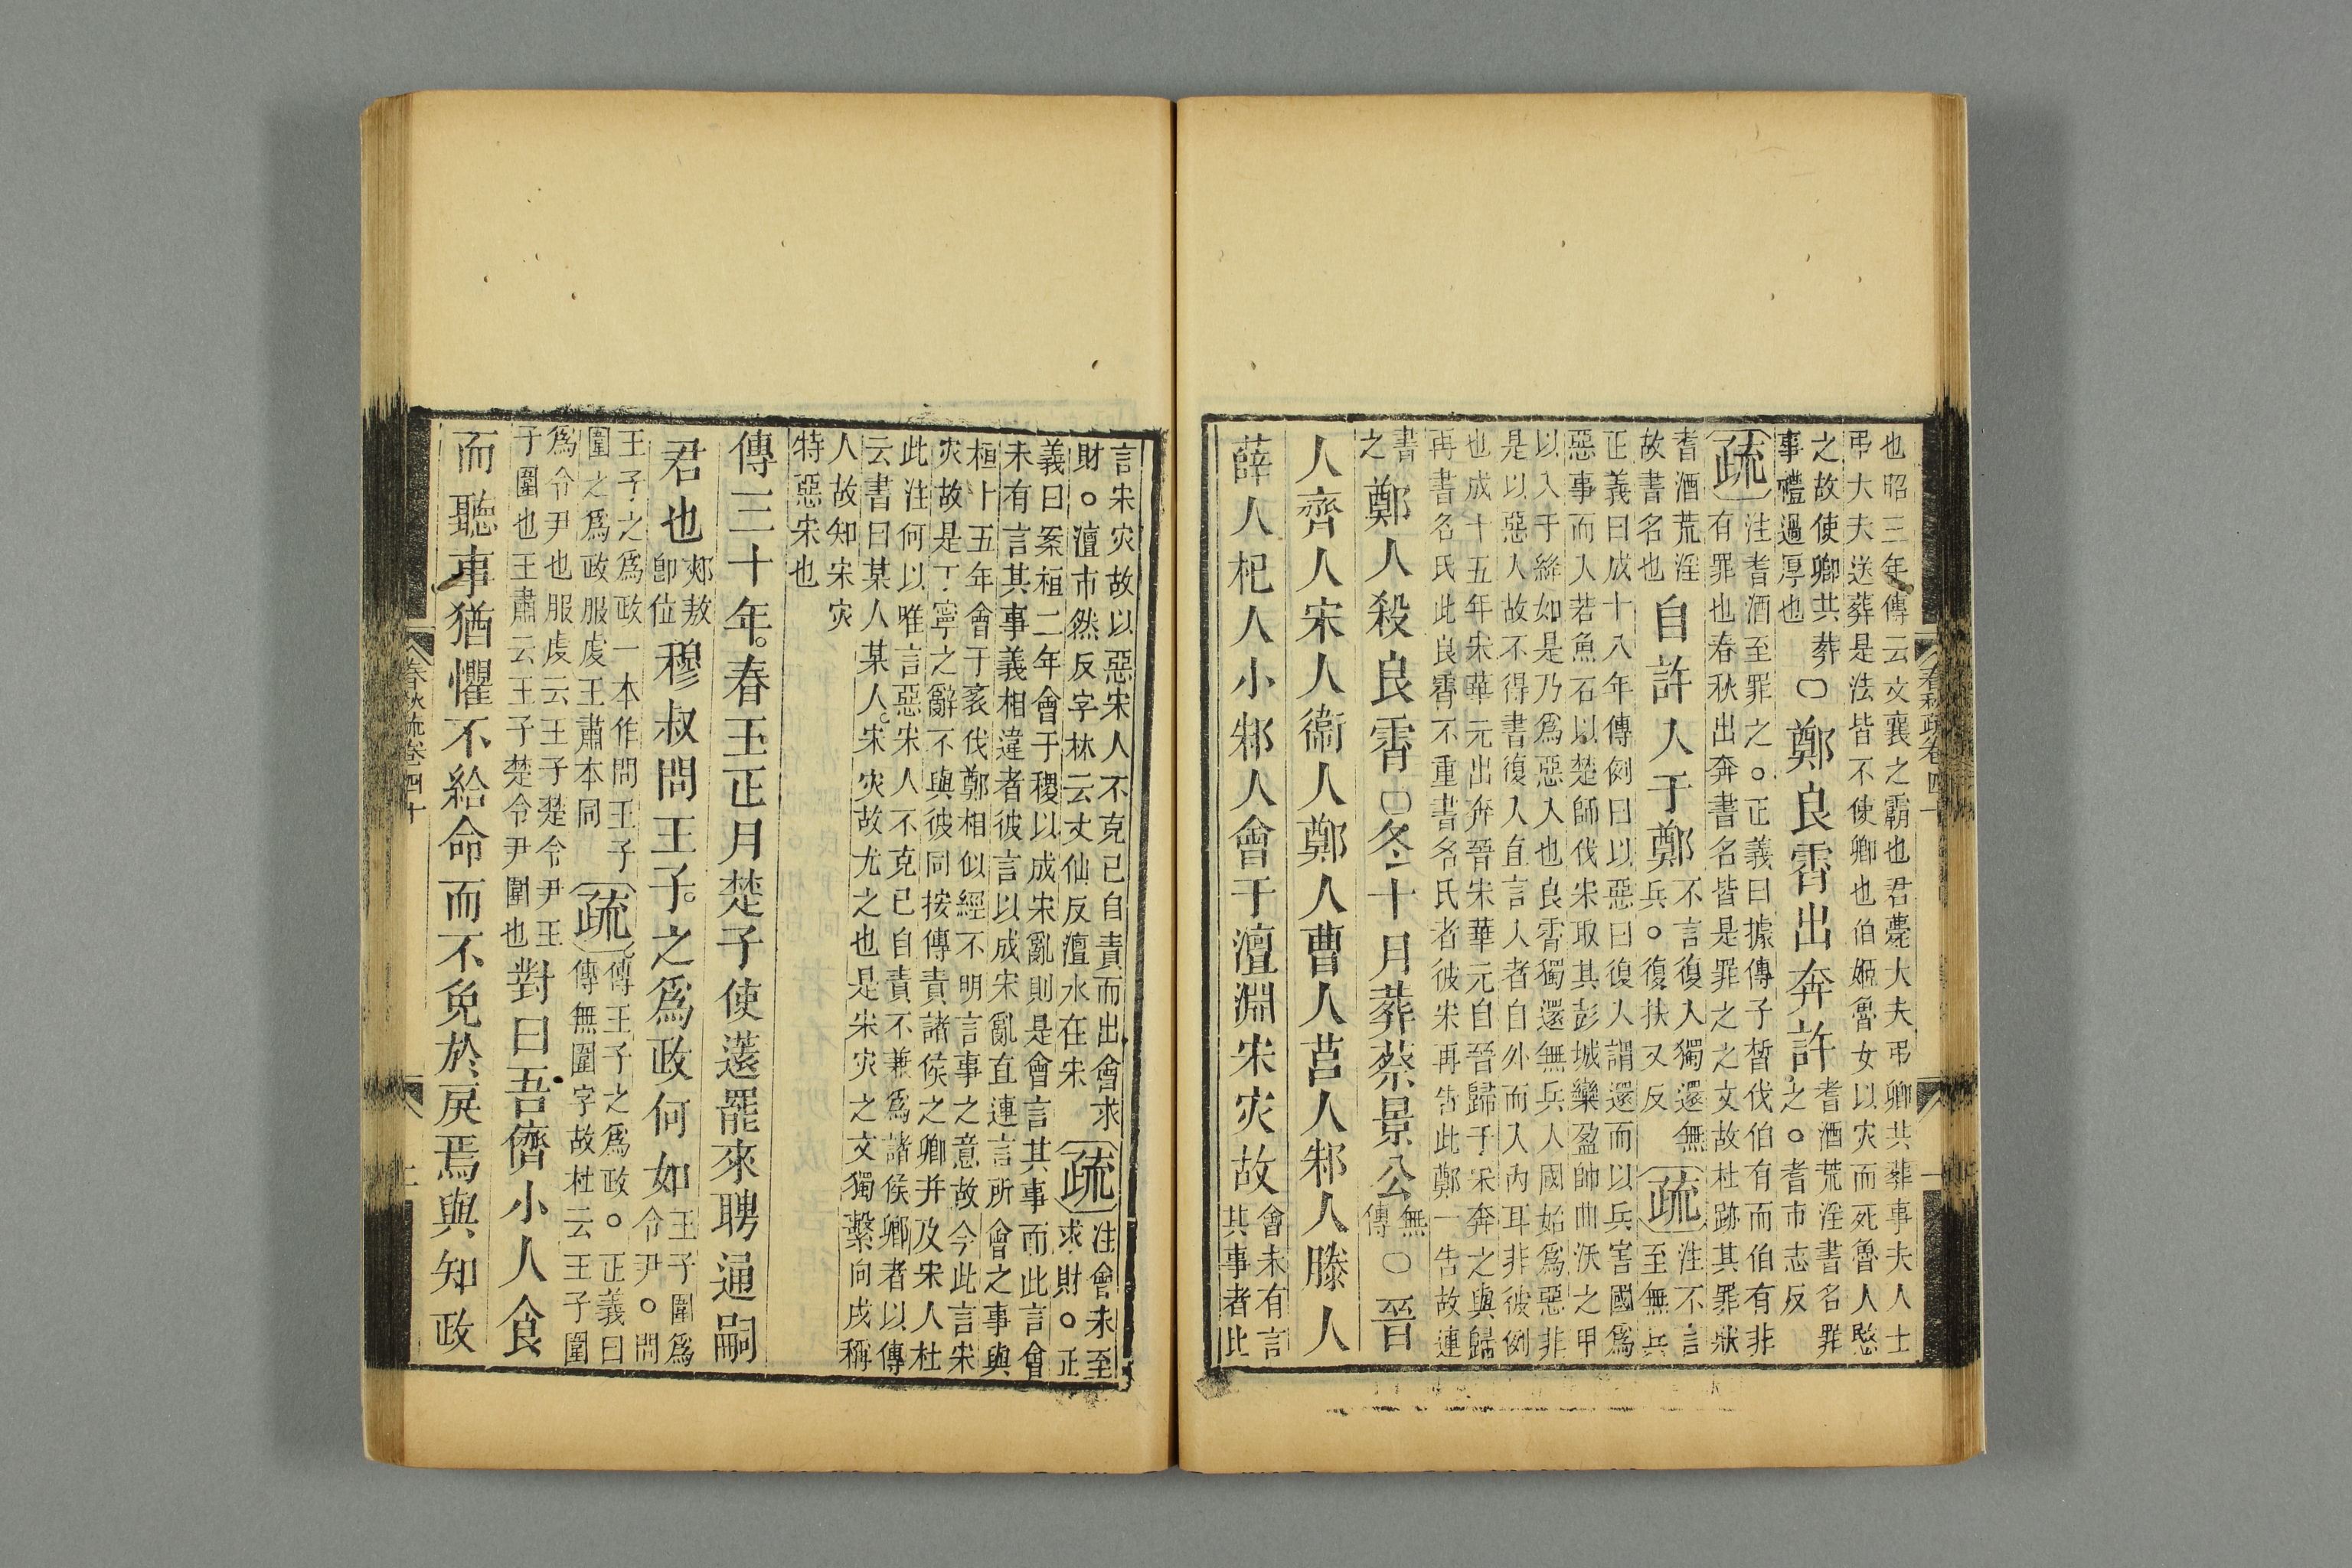 也昭三年傳云文襄之霸也君薨大夫弔卿共葬事夫人士
弔大夫送葬是法皆不使卿也伯姬魯女以灾而死魯人愍
之故使卿共葬
事禮過厚也
〇鄭良霄出奔許
耆酒荒淫書名罪
之。耆市志反
疏
注耆酒至罪之。正義曰據傳子晳伐伯有而伯有非
有罪也春秋出奔書名皆是罪之之文故杜跡其罪狀
耆酒荒淫
故書名也
自許入于鄭
不言復入獨還無
兵。復扶又反
疏
注不言
至無兵
正義曰成十八年傳例曰以惡曰復入謂還而以兵害國爲
惡事而入若魚石以楚師伐宋取其彭城欒盈帥曲沃之甲
以入于絳如是乃爲惡入也良霄獨還無兵入國始爲惡非
是以惡入故不得書復入直言入者自外而入內耳非彼例
也成十五年宋華元出奔晉宋華元自晉歸于宋奔之與歸
再書名氏此良霄不重書名氏者彼宋再告此鄭一告故連
書
之
鄭人殺良霄〇冬十月葬蔡景公
無
傳
〇晉
人齊人宋人衞人鄭人曹人莒人邾人滕人
薛人杞人小邾人會于澶淵宋灾故
會未有言
其事者此
春秋疏卷四十
言宋灾故以惡宋人不克己自責而出會求
財。澶市然反字林云丈仙反澶水在宋
疏
注會未至
求財。正
義曰案桓二年會于稷以成宋亂則是會言其事而此言會
未有言其事義相違者彼言以成宋亂直連言所會之事與
桓十五年會于袲伐鄭相似經不明言事之意故今此言宋
灾故是丁寧之辭不與彼同按傳責諸侯之卿并及宋人杜
此注何以唯言惡宋人不克己自責不兼爲諸侯卿者以傳
云書曰某人某人。宋灾故尤之也是宋灾之文獨繫向戌稱
人故知宋灾
特惡宋也
傳三十年。春王正月楚子使薳罷來聘通嗣
君也
郟敖
卽位
穆叔問王子。之爲政何如
王子圍爲
令尹。問
王子之爲政一本作問王子
圍之爲政服虔王肅本同
疏
傳王子之爲政。正義曰
傳無圍字故杜云王子圍
爲令尹也服虔云王子楚令尹王
子圍也王肅云王子楚令尹圍也
對曰吾儕小人食
而聽事猶懼不給命而不免於戾焉與知政
春秋疏卷四十